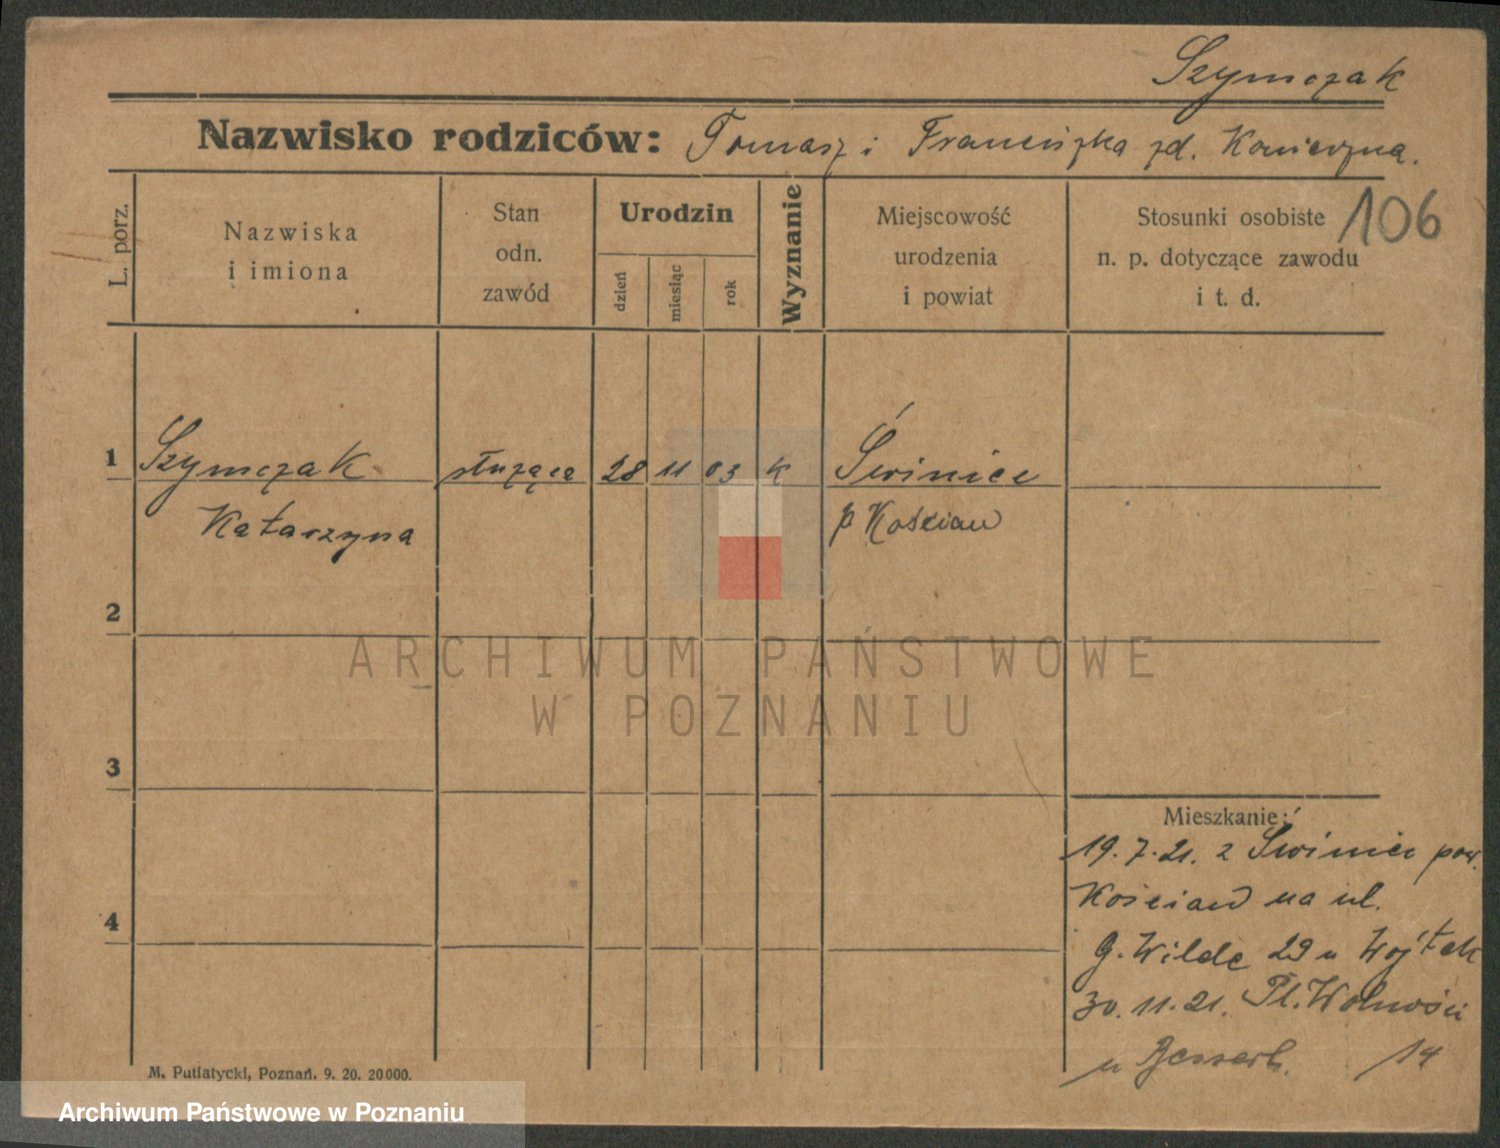 Szymczak
Nazwisko rodziców: Tomasz i Franciszka zd. Konieczna.
106
L. porz.
Nazwiska
i imiona
Stan
odn.
zawód
Urodzin
dzień
miesiąc
rok
Wyznanie
Miejscowość
urodzenia
i powiat
Stosunki osobiste
n. p. dotyczące zawodu
i t. d.
1 Szymczak służąca 28 11 03 k Świniec
Katarzyna p Kościan
2
3
4
Mieszkanie:
19.7.21. z Świniec pow.
Kościan na ul.
G. Wilde 29 u Wojtek
30.11.21. Pl. Wolności
u 14
M. Putiatycki, Poznań. 9. 20. 20000.
ARCHIWUM PAŃSTWOWE
W POZNANIU
Archiwum Państwowe w Poznaniu